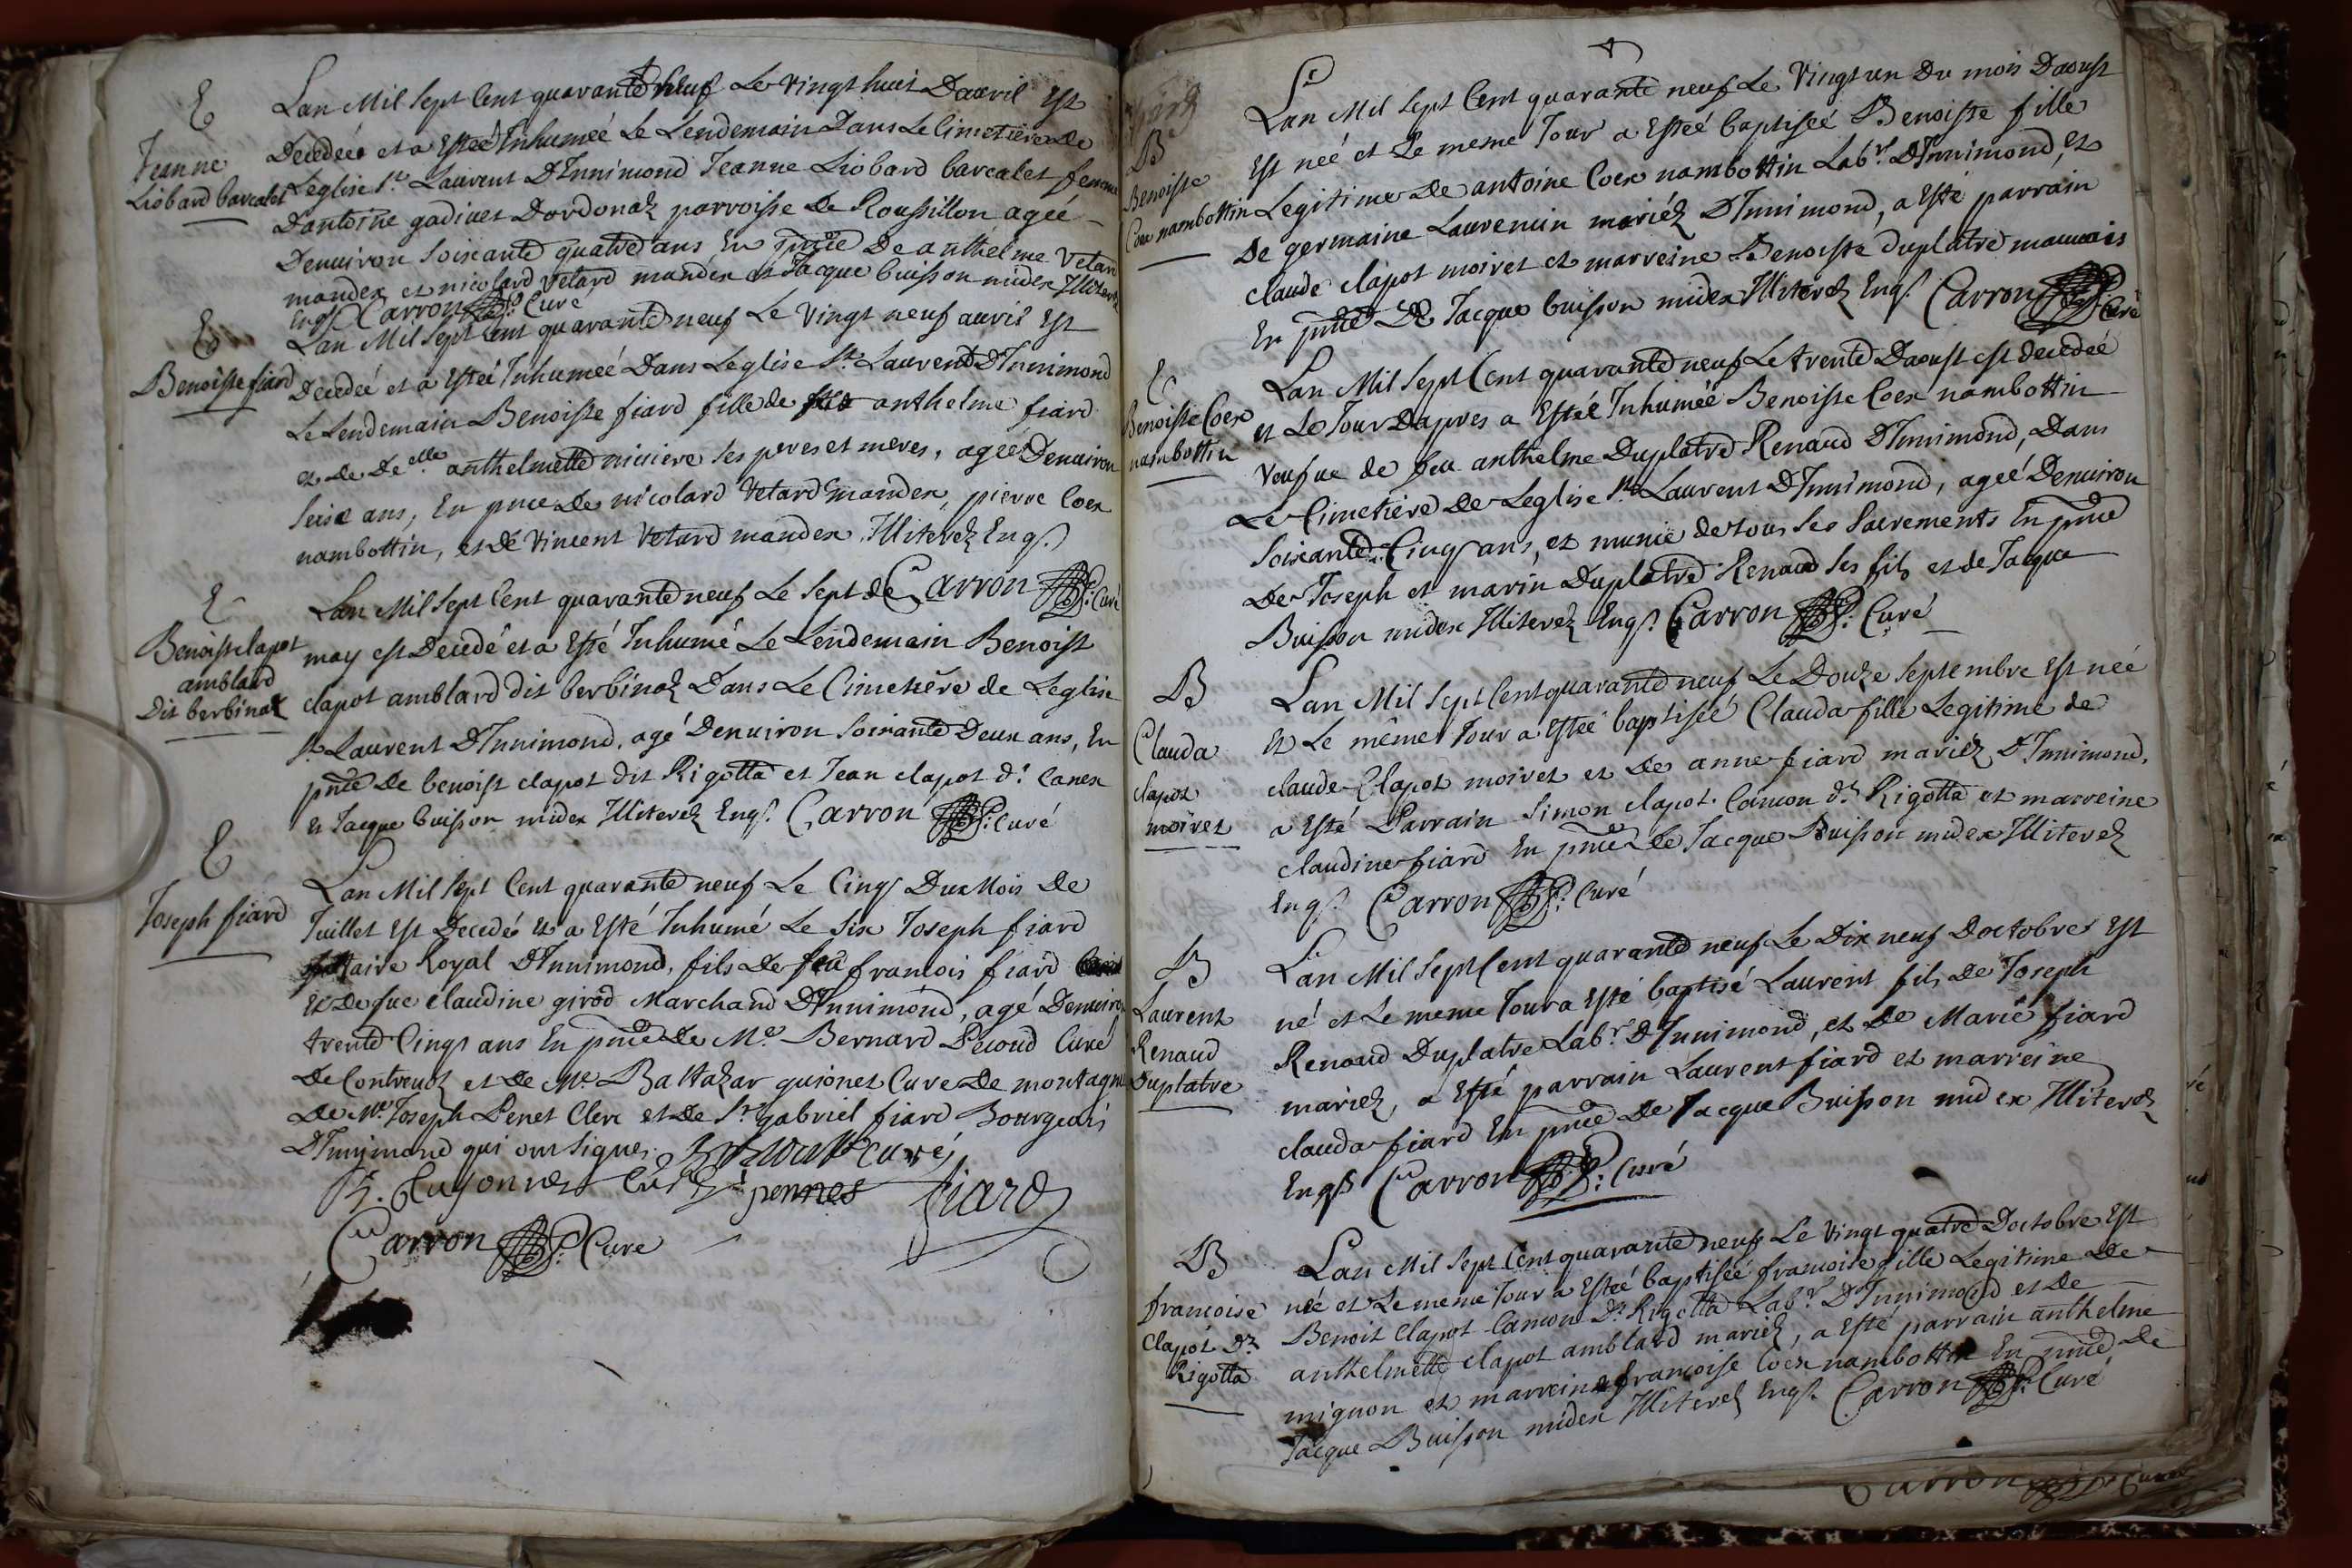 E
Jeanne
Liobard barcalet
Lan Mil Sept Cent quarante neuf Le vingt huit Dauril Est
Decedeé et a Esteé Inhumeé Le Lendemain Dans Le Cimetiere De
Leglise St Laurent DInnimond Jeanne Liobard barcalet femme
Dantoine gadiues Dordonaz parroisse De Roussillon ageé
Denuiron Soixante quatre ans En pnce De anthelme Vetard
mandex et nicolard Vetard mandex et Jacque buisson midex Illiterez
Enqs Carron Curé
E
Benoiste fiard
Lan Mil Sept Cent quarante neuf Le Vingt neuf auril Est
Decedeé et a Esteé Inhumeé Dans Leglise St Laurend DInnimond
Le Lendemain Benoiste fiard fille de anthelme fiard
et de Delle anthelmette ses peres et meres, ageé Denuiron
Seise ans, En pnce De nicolard Vetard mandex, pierre Coex
nambottin, et De Vincent Vetard mandex Illiterez Enqs
Carron Curé
E
Benoist clapot
amblard
Dit berbinaz
Lan Mil Sept Cent quarante neuf Le Sept de
may est Decedé et a Esté Inhumé Le Lendemain Benoist
clapot amblard dit berbinaz Dans Le Cimetiere de Leglise
St Laurent DInnimond, agé Denuiron Soixante Deux ans, En
pnce De benoist clapot dit Rigotta et Jean clapot dt Canex
et Jacque buisson midex Illiterez Enqs. Carron Curé
E
Joseph fiard
Lan Mil Sept Cent quarante neuf Le Cinqs Du Mois De
Juillet Est Decedé et a Esté Inhumé Le Six Joseph fiard
Nottaire Royal DInnimond, fils De feu francois fiard
et De fue claudine girod Marchand DInnimond, agé Denuiron
trente Cinqs ans En pnce De Me Bernard Pecoud Curé
De Contreuoz et De Me Baltazar guionet Cure De montagnieu
De Me Joseph Penet Clerc et De Sr gabriel fiard Bourgeois
DInnimond qui ont Signes. curé
B. Guyonnet Curé pennet fiard
Carron Cure
B
Benoiste
Coex nambottin
Lan Mil Sept Cent quarante neuf Le Vingt un Du mois Daoust
Est neé et Le meme Jour a Esteé baptiseé Benoiste fille
Legitime De antoine Coex nambottin Labr. DInnimond, et
De germaine Laurencin mariéz DInnimond, a Esté parrain
claude clapot moiret et marreine Benoiste duplatre mauuais
En pnce De Jacque buisson midex Illiterez Enqs. Carron Curé
E
Benoiste Coex
nambottin
Lan Mil Sept Cent quarante neuf Le trente Daoust est decedeé
et Le Jour Dapres a Esteé Inhumeé Benoiste Coex nambottin
Veufue de feu anthelme Duplatre Renaud DInnimond, Dans
Le Cimetiere De Leglise St Laurent DInnimond, ageé Denuiron
Soixante Cinqs ans, et munie de tous Ses Sacrements En pnce
De Joseph et marin Duplatre Renaud Ses fils et de Jacque
Buisson midex Illiterez Enqs. Carron Curé
B
Clauda
clapot
moiret
Lan Mil Sept Cent quarante neuf Le Douze Septembre Est neé
Et Le même Jour a Esteé baptiseé Clauda fille Legitime de
claude Clapot moiret et De anne fiard mariez DInnimond,
a Esté Parrain Simon clapot Camon dt Rigotta et marreine
claudine fiard En pnce De Jacque Buisson midex Illiterez
Enqs. Carron Curé
B
Laurent
Renaud
Duplatre
Lan Mil Sept Cent quarante neuf Le Dix neuf Doctobre Est
né et Le meme Jour a Esté baptisé Laurent fils De Joseph
Renaud Duplatre Labr. DInnimond, et De Marie fiard
mariez, a Esté parrain Laurent fiard et marreine
clauda fiard En pnce De Jacque Buisson midex Illiterez
Enqs Carron Curé
B
francoise
Clapot Dt
Rigotta
Lan Mil Sept Cent quarante neuf Le Vingt quatre Doctobre Est
neé et Le meme Jour a Esteé baptiseé francoise fille Legitime De
Benoit Clapot Camon Dt Rigotta Labr. DInnimond et De
anthelmette clapot amblard mariez, a Esté parrain anthelme
mignon et marreine francoise Coex nambottin En pnce De
Jacque Buisson midex Illiterez Enqs. Carron Curé
Carron Curé